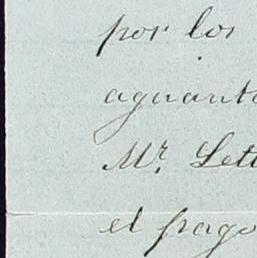 por los
aguanta
Mr. Lett
el pago